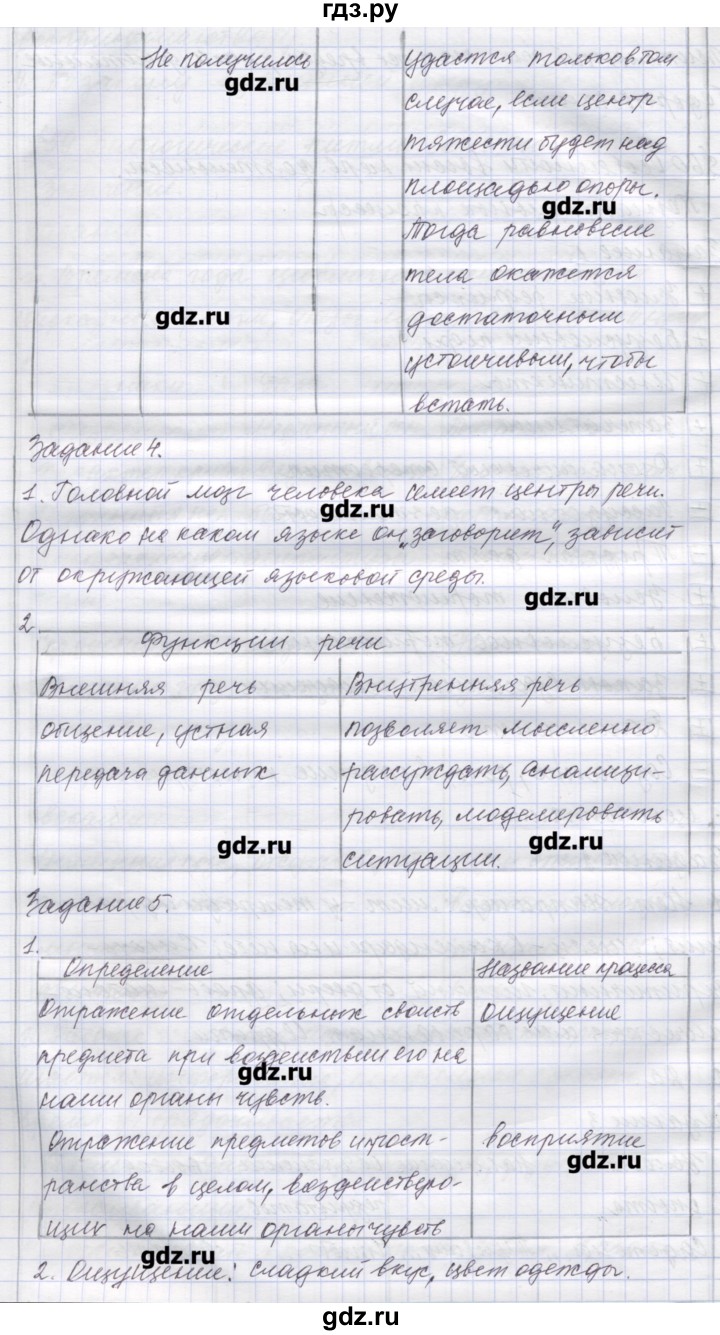 гдз.ру
Не получилось
gdz.ru
удастся только в том
случае, если центр
тяжести будет над
площадью опоры.
gdz.ru
Тогда равновесие
тела окажется
gdz.ru
достаточным
устойчивым, чтобы
встать.
Задание 4.
1. Головной мозг человека имеет центры речи.
gdz.ru
Однако на каком языке он „заговорит", зависит
от окружающей языковой среды.
gdz.ru
2.
Функции речи
Внешняя речь
общение, устная
передача данных
gdz.ru
Внутренняя речь
позволяет мысленно
рассуждать, анализи-
ровать, моделировать
gdz.ru
ситуации.
Задание 5.
1.
Определение
Название процесса
Отражение отдельных свойств
предмета при воздействии его на
gdz.ru
наши органы чувств.
Ощущение
Отражение предметов и прост-
ранства в целом, воздействую-
щих на наши органы чувств
восприятие
gdz.ru
gdz.ru
2. Ощущение: сладкий вкус, цвет одежды.
gdz.ru